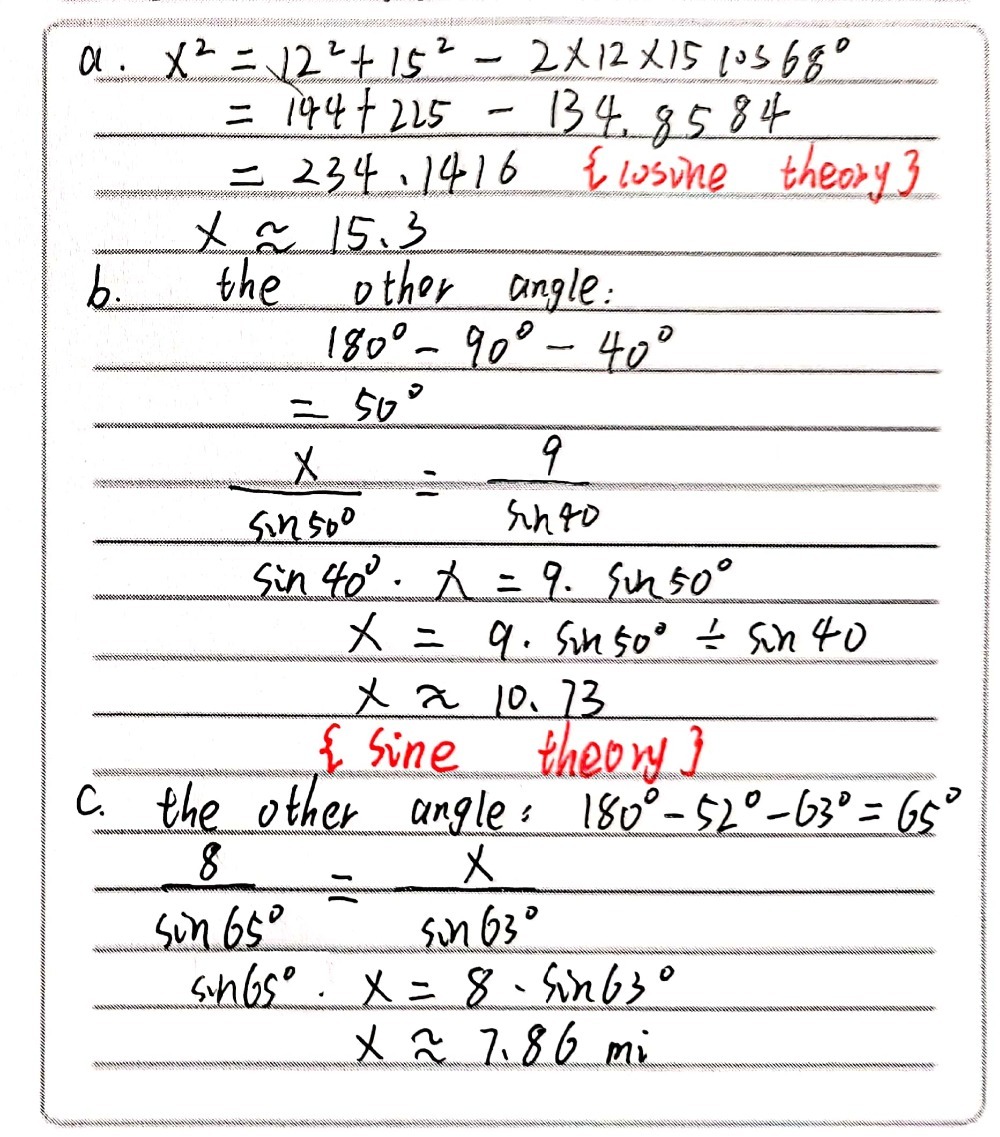 a. x² = 12² + 15² - 2×12×15 cos 68°
= 144 + 225 - 134.8584
= 234.1416 {cosine theory}
x ≈ 15.3
b. the other angle:
180° - 90° - 40°
= 50°
x/sin50° = 9/sin40
sin40° · x = 9 · sin50°
x = 9 · sin50° ÷ sin40
x ≈ 10.73
{sine theory}
c. the other angle: 180° - 52° - 63° = 65°
8/sin65° = x/sin63°
sin65° · x = 8 · sin63°
x ≈ 7.86 mi